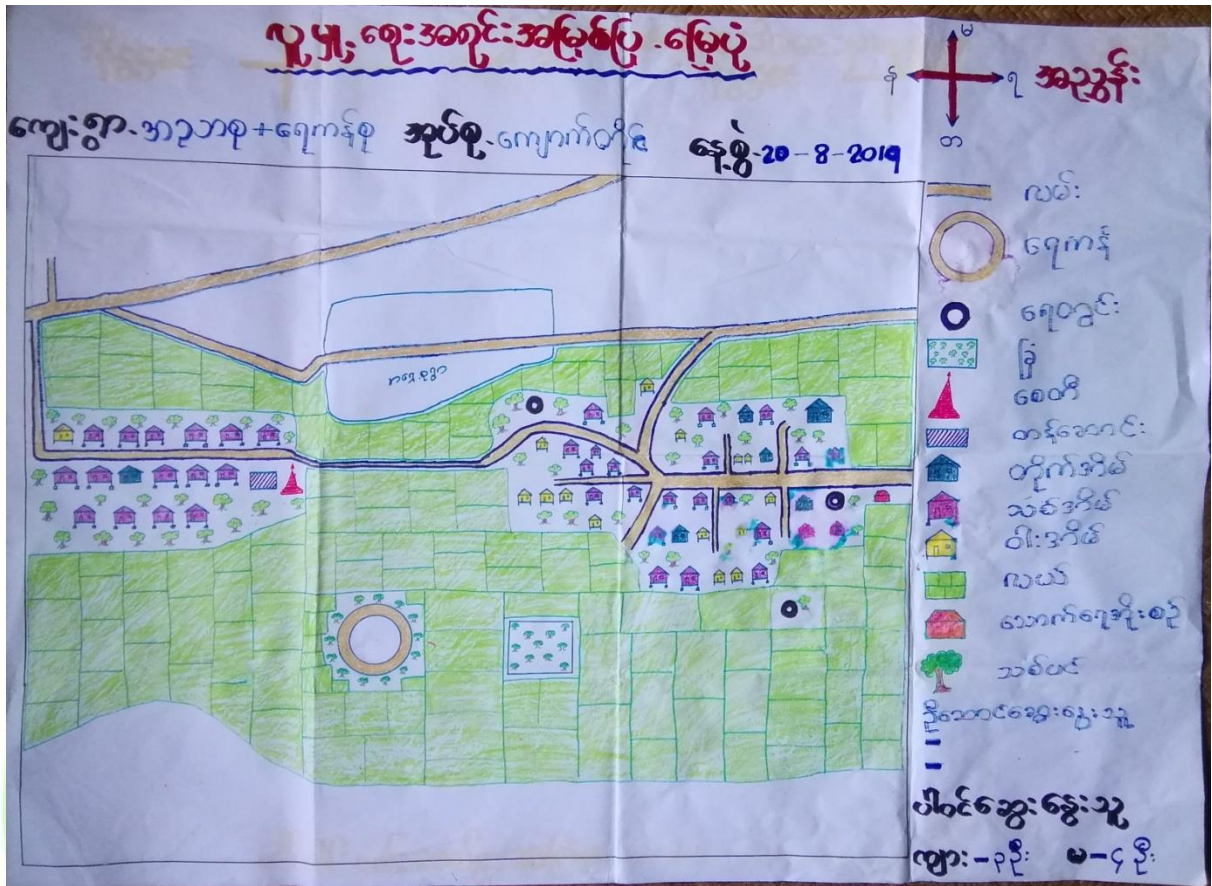 လူမှု့ရေးအရင်းအမြစ်ပြ.မြေပုံ
ကျေးရွာ.အဥဘစု+ရေကန်စု အုပ်စု.ကျောက်တိုင် နေ့စွဲ-20-8-2019
မ
န ရ
တ
အညွှန်း
လမ်း
ရေကန်
ရေတွင်း
ခြံ
စေတီ
တန်ဆောင်း
တိုက်အိမ်
သစ်အိမ်
ဝါးအိမ်
လယ်
သောက်ရေအိုးစဉ်
သစ်ပင်
ဦးဆောင်ဆွေးနွေးသူ
-
-
ပါဝင်ဆွေးနွေးသူ
ကျား-၃ဦး မ-၄ဦး